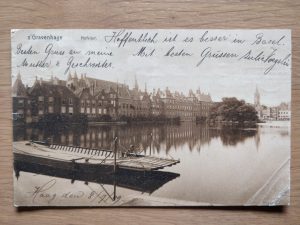 's Gravenhage
Hofvijver.
Hoffentlich ist es besser in Basel.
Besten Gruss an meine
Mutter & Geschwister
Mit besten Grüssen
Haag den 8/9 09